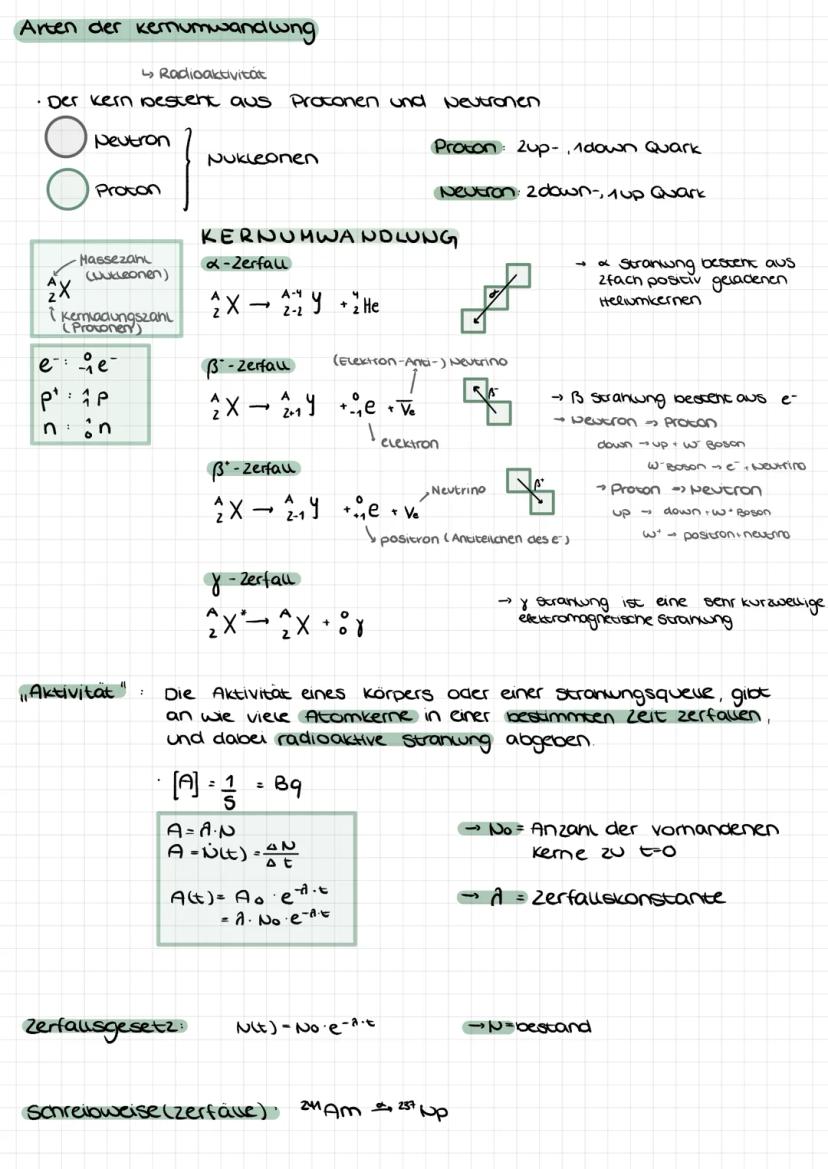 Arten der Kernumwandlung
↳ Radioaktivität
· Der Kern besteht aus Protonen und Neutronen
Neutron
Proton
Nukleonen
Proton: 2up-, 1down Quark
Neutron: 2down-, 1up Quark
KERNUMWANDLUNG
Massezahl
(Nukleonen)
A
Z X
Kernladungszahl
(Protonen)
e⁻: ⁰₋₁e⁻
p⁺: ¹₁p
n: ¹₀n
α-Zerfall
ᴬ_Z X → ᴬ⁻⁴_Z-2 Y + ⁴₂He
α
→ α Strahlung besteht aus
2fach positiv geladenen
Heliumkernen
β⁻-Zerfall
(Elektron-Anti-) Neutrino
ᴬ_Z X → ᴬ_Z+1 Y + ⁰₋₁e + V̅e
elektron
β⁻
→ β Strahlung besteht aus e⁻
→ Neutron → Proton
down → up + W⁻ Boson
W⁻Boson → e⁻ + Neutrino
β⁺-Zerfall
Neutrino
ᴬ_Z X → ᴬ_Z-1 Y + ⁰₊₁e + Ve
positron (Antiteilchen des e⁻)
β⁺
→ Proton → Neutron
up → down + W⁺ Boson
W⁺ → positron + neutrino
γ-Zerfall
ᴬ_Z X* → ᴬ_Z X + ⁰₀γ
→ γ Strahlung ist eine sehr kurzwellige
elektromagnetische Strahlung
„Aktivität": Die Aktivität eines Körpers oder einer Strahlungsquelle, gibt
an wie viele Atomkerne in einer bestimmten Zeit zerfallen,
und dabei radioaktive Strahlung abgeben.
· [A] = 1/s = Bq
A = λ·N
A = Ṅ(t) = ΔN/Δt
A(t) = A₀ · e^-λ·t
= λ · N₀ · e^-λ·t
→ N₀ = Anzahl der vorhandenen
Kerne zu t=0
→ λ = Zerfallskonstante
Zerfallsgesetz: N(t) = N₀ · e^-λ·t → N = bestand
Schreibweise (Zerfälle): ²⁴¹Am α→ ²³⁷Np